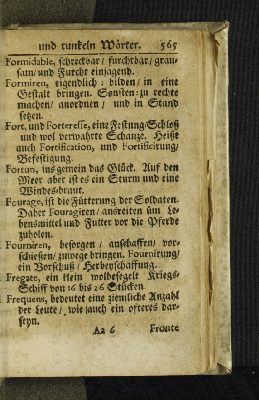 und tunkeln Wörter. 565
Formidable, schreckbar / furchtbar / grau-
sam / und Furcht einjagend.
Formiren, eigendlich: bilden / in eine
Gestalt bringen. Sonsten: zu rechte
machen / anordnen / und in Stand
setzen.
Fort, und Forteresse, eine Festung / Schloß
und wol verwahrte Schanze. Heißt
auch Fortification, und Fortificirung /
Befestigung.
Fortun, ins gemein das Glück. Auf den
Meer aber ist es ein Sturm und eine
Windesbraut.
Fourage, ist die Fütterung der Soldaten.
Daher Fouragiren / ausreiten üm Le-
bensmittel und Futter vor die Pferde
zuholen.
Fourniren, besorgen / anschaffen / vor-
schießen / zuwege bringen. Fournirung /
ein Vorschuß / Herbeyschaffung.
Fregate, ein klein wolbesegelt Kriegs-
Schiff von 16 bis 26 Stücken
Frequens, bedeutet eine ziemliche Anzahl
der Leute / wie auch ein öfteres dar-
seyn.
Aa 6 Fronte